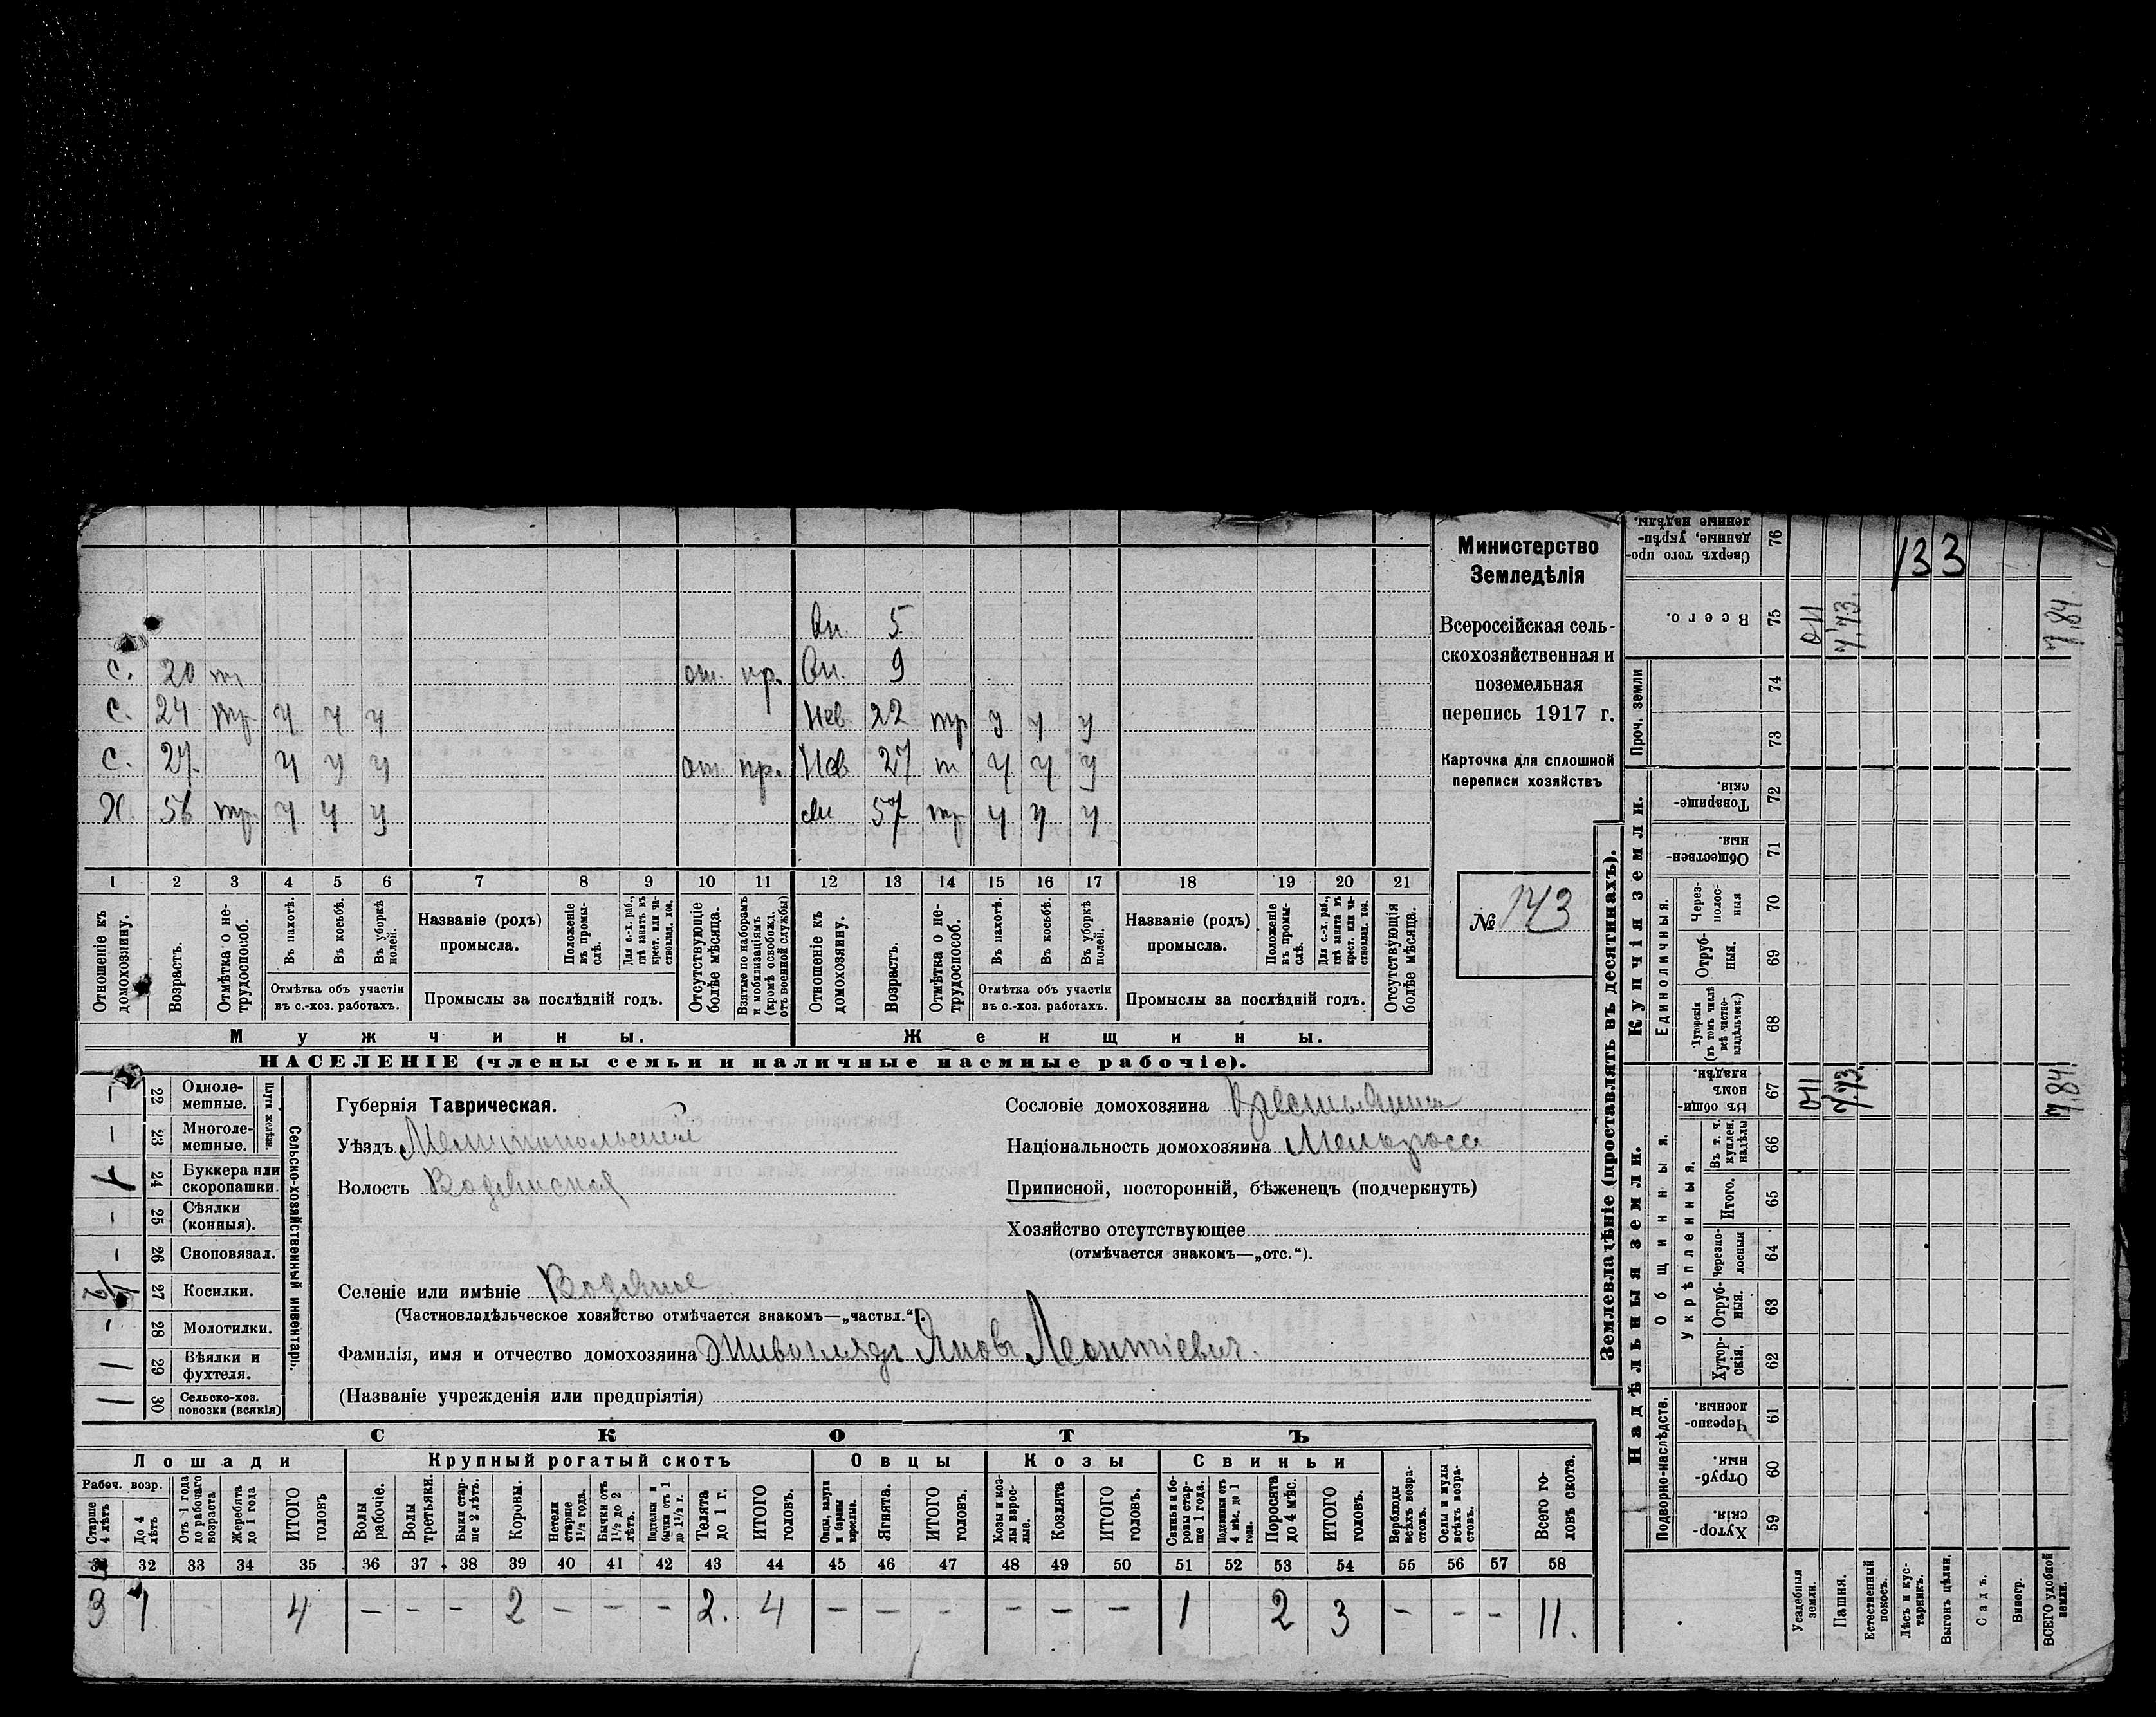 Министерство
Земледѣлія
Всероссійская сель-
скохозяйственная и
поземельная
перепись 1917 г.
Карточка для сплошной
переписи хозяйствъ
№ 143
133
Вн. 5
с. 20 т от. пр. Вн. 9
с. 24 тр у у у Нев. 22 тр у у у
с. 27. у у у от. пр. Нев 27 т у у у
Х. 56 тр. у у у 57 тр у у у
1 2 3 4 5 6 7 8 9 10 11 12 13 14 15 16 17 18 19 20 21
Отношеніе къ домохозяину.
Возрастъ.
Отмѣтка о не-трудоспособ.
Въ пахотѣ.
Въ косьбѣ.
Въ уборкѣ полей.
Отмѣтка объ участіи
въ с.-хоз. работахъ.
Названіе (родъ)
промысла.
Положеніе въ промы-слѣ.
Для с.-х. раб., гдѣ занятъ въ крест. или ча-ствовлад. хоз.
Промыслы за послѣдній годъ.
Отсутствующіе болѣе мѣсяца.
Взятые по наборамъ и мобилизаціямъ (кромѣ освобожд. отъ военной службы)
Отношеніе къ домохозяину.
Возрастъ.
Отмѣтка о не-трудоспособ.
Въ пахотѣ.
Въ косьбѣ.
Въ уборкѣ полей.
Отмѣтка объ участіи
въ с.-хоз. работахъ.
Названіе (родъ)
промысла.
Положеніе въ промы-слѣ.
Для с.-х. раб., гдѣ занята въ крест. или ча-ствовлад. хоз.
Промыслы за послѣдній годъ.
Отсутствующія болѣе мѣсяца.
Мужчины. Женщины.
НАСЕЛЕНІЕ (члены семьи и наличные наемные рабочіе).
Сельско-хозяйственный инвентарь.
Плуги желѣзн.
22 Одноле-мешные. –
23 Многоле-мешные. –
24 Буккера или скоропашки. 1
25 Сѣялки (конныя). –
26 Сноповязал. –
27 Косилки.
28 Молотилки. –
29 Вѣялки и фухтеля. 1
30 Сельско-хоз. повозки (всякія) 1
Губернія Таврическая.
Уѣздъ Мелитопольскій
Волость Водянская
Селеніе или имѣніе Водяное
(Частновладѣльческое хозяйство отмѣчается знакомъ—„частвл.“).
Фамилія, имя и отчество домохозяина Живоглядъ Яковъ Леонтіевич.
(Названіе учрежденія или предпріятія)
Сословіе домохозяина Крестьянин
Національность домохозяина Малоросс
Приписной, посторонній, бѣженецъ (подчеркнуть)
Хозяйство отсутствующее
(отмѣчается знакомъ—„отс.“).
СКОТЪ
Лошади Крупный рогатый скотъ Овцы Козы Свиньи
Рабоч. возр.
Старше 4 лѣтъ
До 4 лѣтъ
Отъ 1 года до рабочаго возраста
Жеребята до 1 года
ИТОГО головъ
Волы рабочіе.
Волы третьяки.
Быки стар-ше 2 лѣтъ.
Коровы.
Нетели старше 1½ года.
Бычки отъ 1½ до 2 лѣтъ.
Подтелки и бычки отъ 1 до 1½ г.
Телята до 1 г.
ИТОГО головъ.
Овцы, валухи и бараны взрослые.
Ягнята.
ИТОГО головъ.
Козы и коз-лы взрос-лые.
Козлята
ИТОГО головъ.
Свиньи и бо-ровы стар-ше 1 года.
Подсвинки отъ 4 мѣс. до 1 года.
Поросята до 4 мѣс.
ИТОГО головъ.
Верблюды всѣхъ возра-стовъ.
Ослы и мулы всѣхъ возра-стовъ.
Всего го-ловъ скота.
31 32 33 34 35 36 37 38 39 40 41 42 43 44 45 46 47 48 49 50 51 52 53 54 55 56 57 58
3 1 4 – – – 2 – – – 2. 4 – – – – – – 1 2 3 – – – 11.
Землевладѣніе (проставлять въ десятинахъ).
Надѣльныя земли.
Купчія земли.
Проч. земли
Подворно-наслѣдств.
Общинныя.
Укрѣпленныя.
Единоличныя.
Сверхъ того про-данные, укрѣп-ленные надѣлы. 76
Всего. 75 011 7,73. 7,84.
74
73
Товарище-скія. 72
Обществен-ныя 71
Через-полос-ныя 70
Отруб-ныя. 69
Хуторскія (въ томъ числѣ всѣ частно-владѣльческ.) 68
Въ общин-номъ владѣн. 67 011 7,73. 7,84.
Въ т. ч. куплен. надѣлы 66
Итого. 65
Черезпо-лосныя 64
Отруб-ныя. 63
Хутор-скія. 62
Черезпо-лосныя. 61
Отруб-ныя. 60
Хутор-скія. 59
Усадебныя земли.
Пашня.
Естественный покосъ.
Лѣсъ и кус-тарникъ.
Выгонъ цѣлин.
Садъ.
Виногр.
ВСЕГО удобной земли.